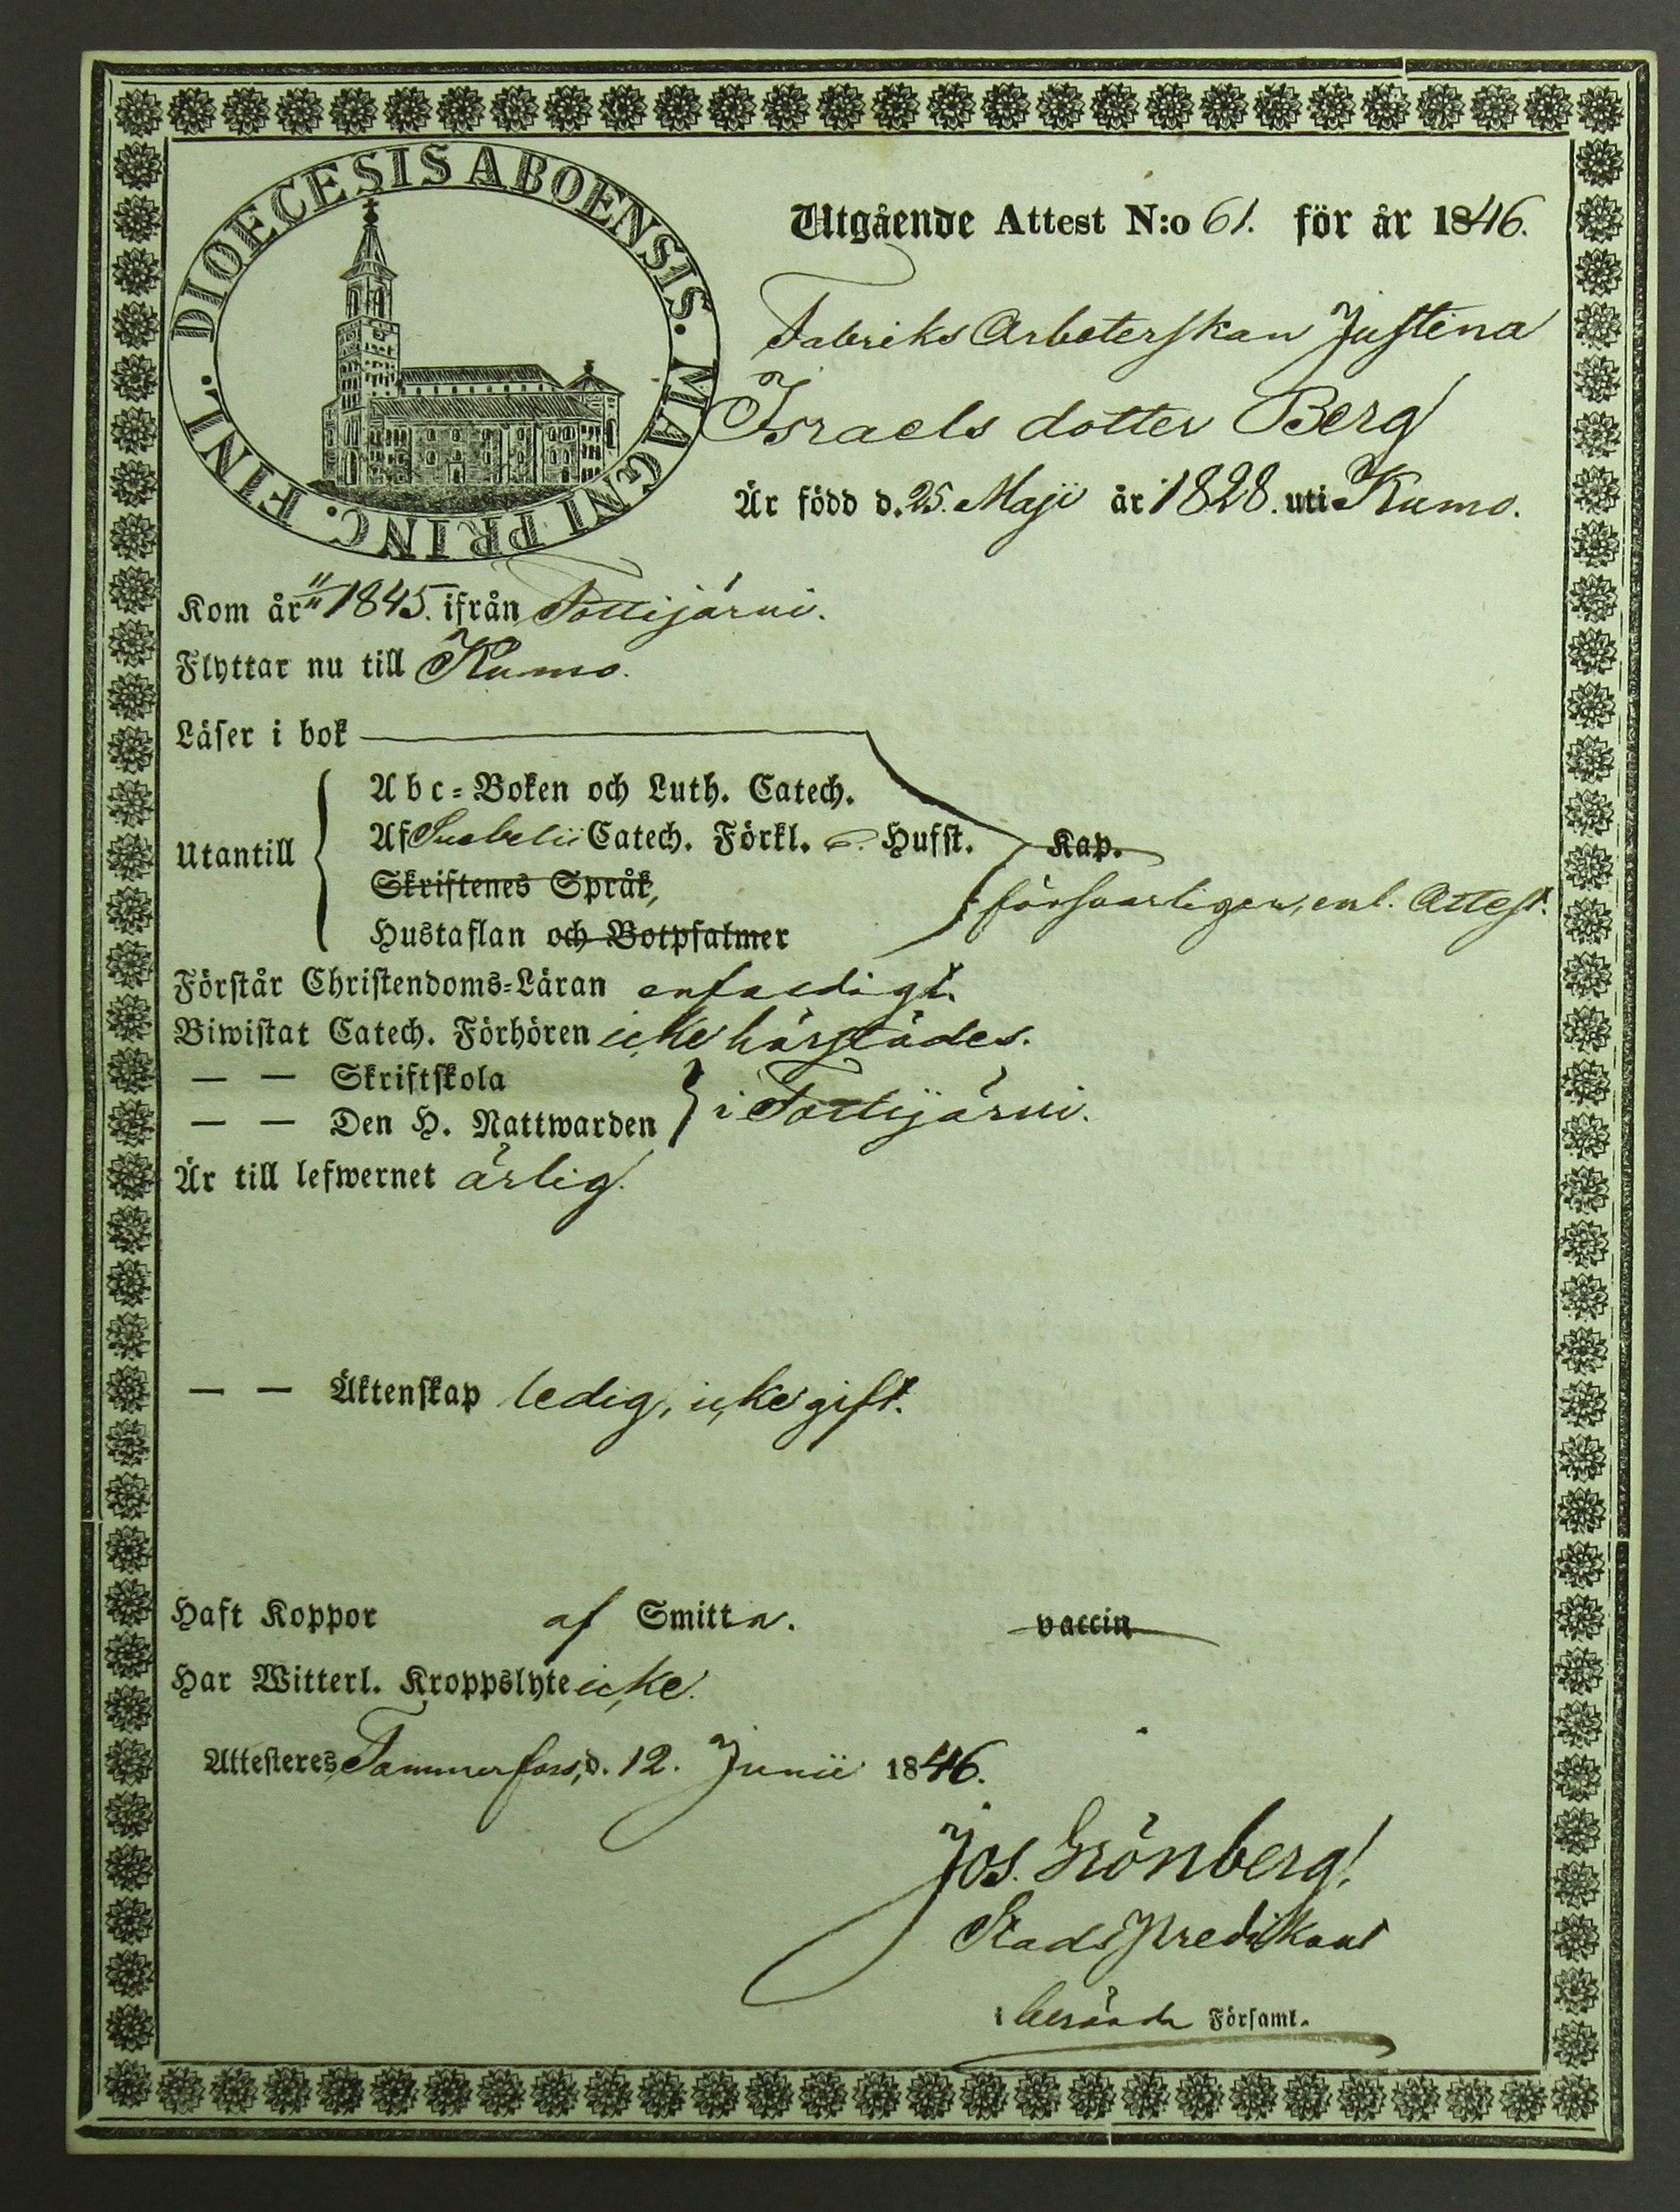 DIOECESIS ABOENSIS. MAGNI PRINC. FINL.
Utgående Attest N:o 61. för år 1846.
Fabriks Arbeterskan Justina
Israels dotter Berg
Är född d. 25. Maji år 1828. uti Kumo.
Kom år 1845. ifrån Tottijärvi.
Flyttar nu till Kumo.
Läser i bok
Abc-Boken och Luth. Catech.
Utantill Af Svebelii Catech. Förkl. Hufst. Kap.
Skriftenes Språk, försvarligen, enl. Attest.
Hustaflan och Botpsalmer
Förstår Christendoms-Läran enfaldigt.
Biwistat Catech. Förhören icke härstädes.
— — Skriftskola
— — Den H. Nattwarden i Tottijärvi.
Är till lefwernet ärlig.
— — Äktenskap ledig, icke gift.
Haft Koppor af Smitta. vaccin
Har Witterl. Kroppslyte icke.
Attesteras, Tammerfors, d. 12. Junii 1846.
Jos. Grönberg.
Stads Predikant
i berörde Församl.